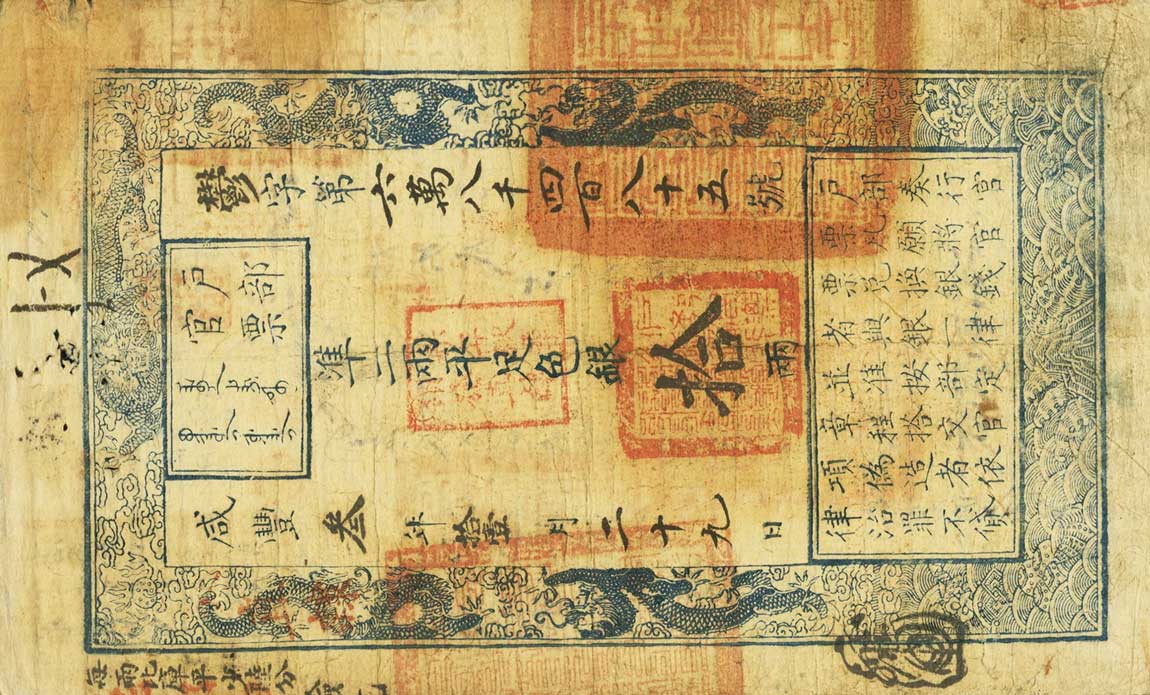 戶部
官票
鬱字第六萬八千四百八十五號
準二兩平足色銀拾兩
咸豐叁年拾壹月二十九日
戶部奏行官
票凡願將官
票兌換銀錢
者與銀一律
並准按部定
章程搭交官
項偽造者依
律治罪不貸
每兩比庫平少陸分